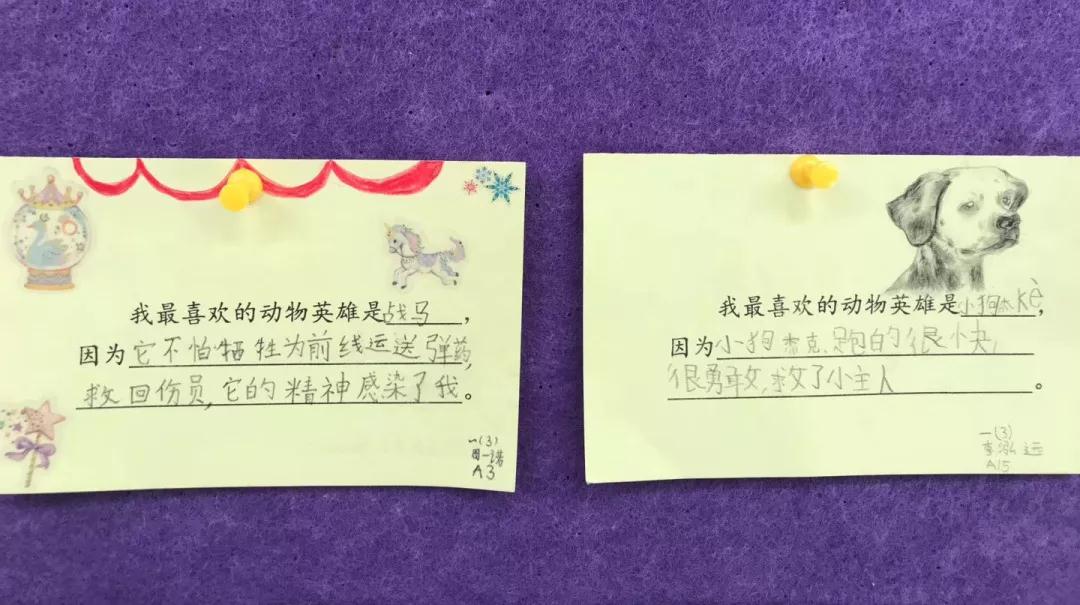 我最喜欢的动物英雄是战马,
因为它不怕牺牲为前线运送弹药,
救回伤员,它的精神感染了我。
一(3)
周一诺
A3
我最喜欢的动物英雄是小狗杰kè,
因为小狗杰克,跑的很快,
很勇敢,救了小主人。
一(3)
李泓远
A15